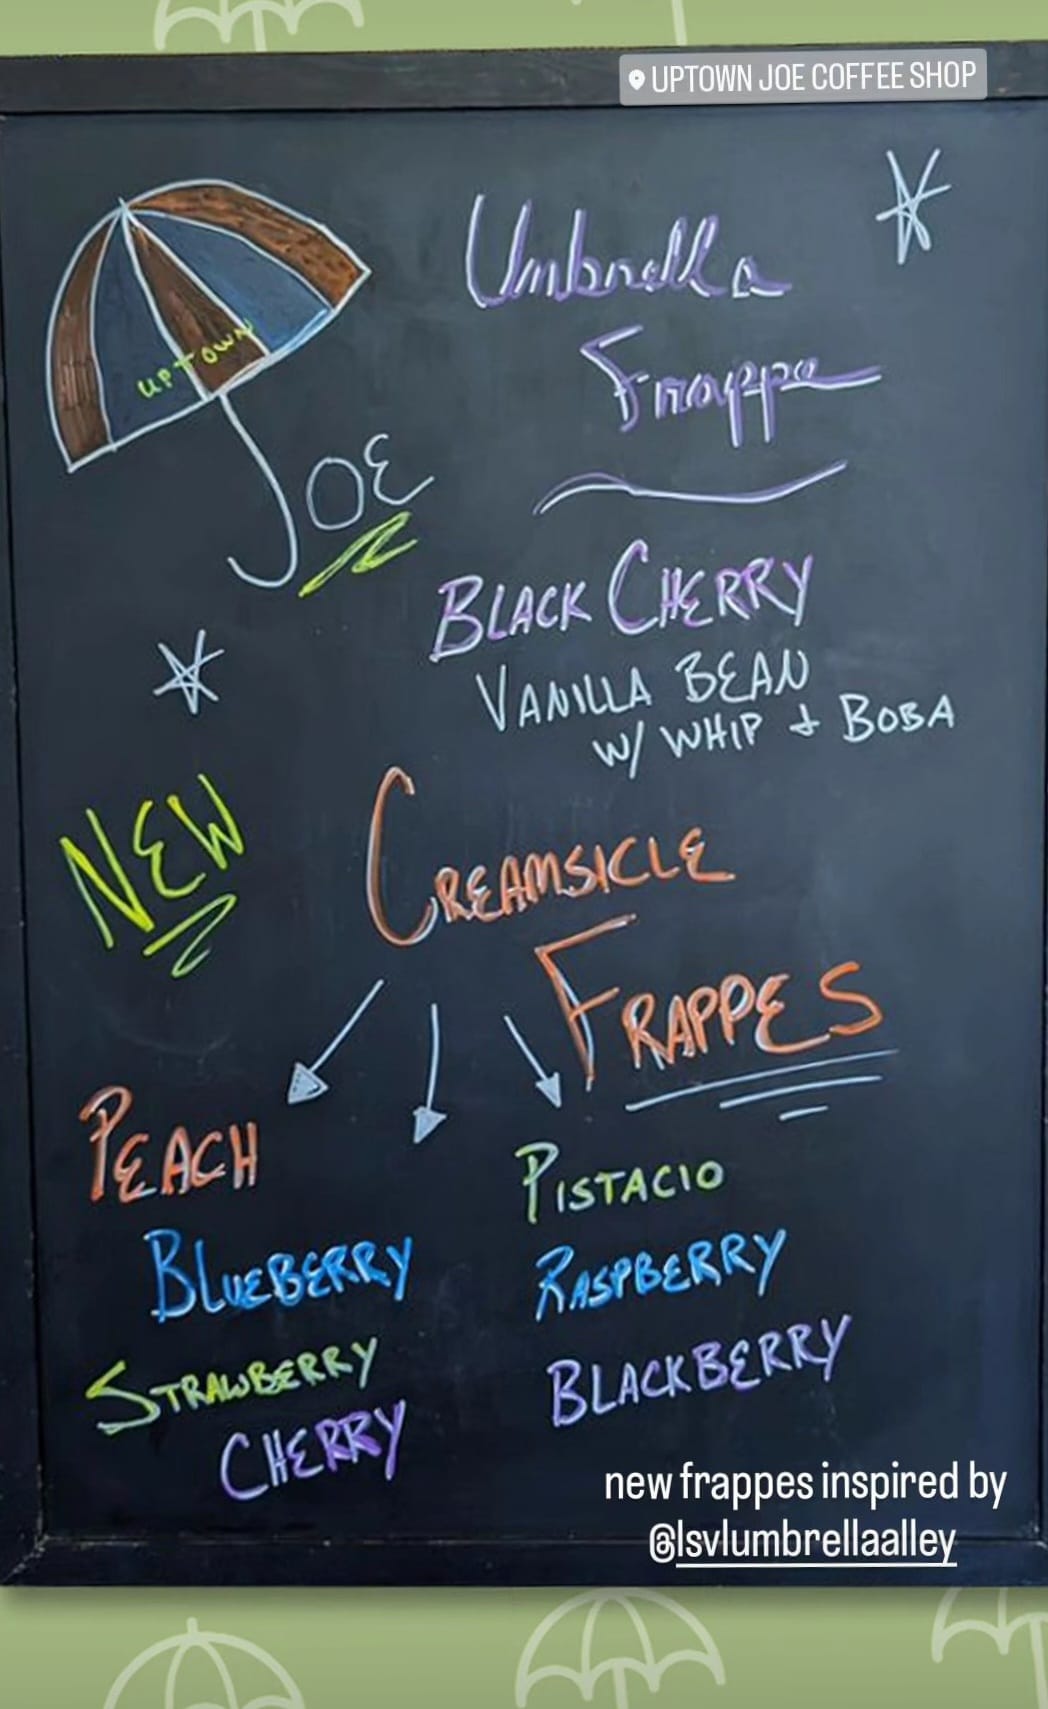 UPTOWN JOE COFFEE SHOP
UPTOWN
JOE
Umbrella
Frappe
BLACK CHERRY
VANILLA BEAN
W/ WHIP + BOBA
NEW
CREAMSICLE
FRAPPES
PEACH
BLUEBERRY
STRAWBERRY
CHERRY
PISTACIO
RASPBERRY
BLACKBERRY
new frappes inspired by
@lsvlumbrellaalley